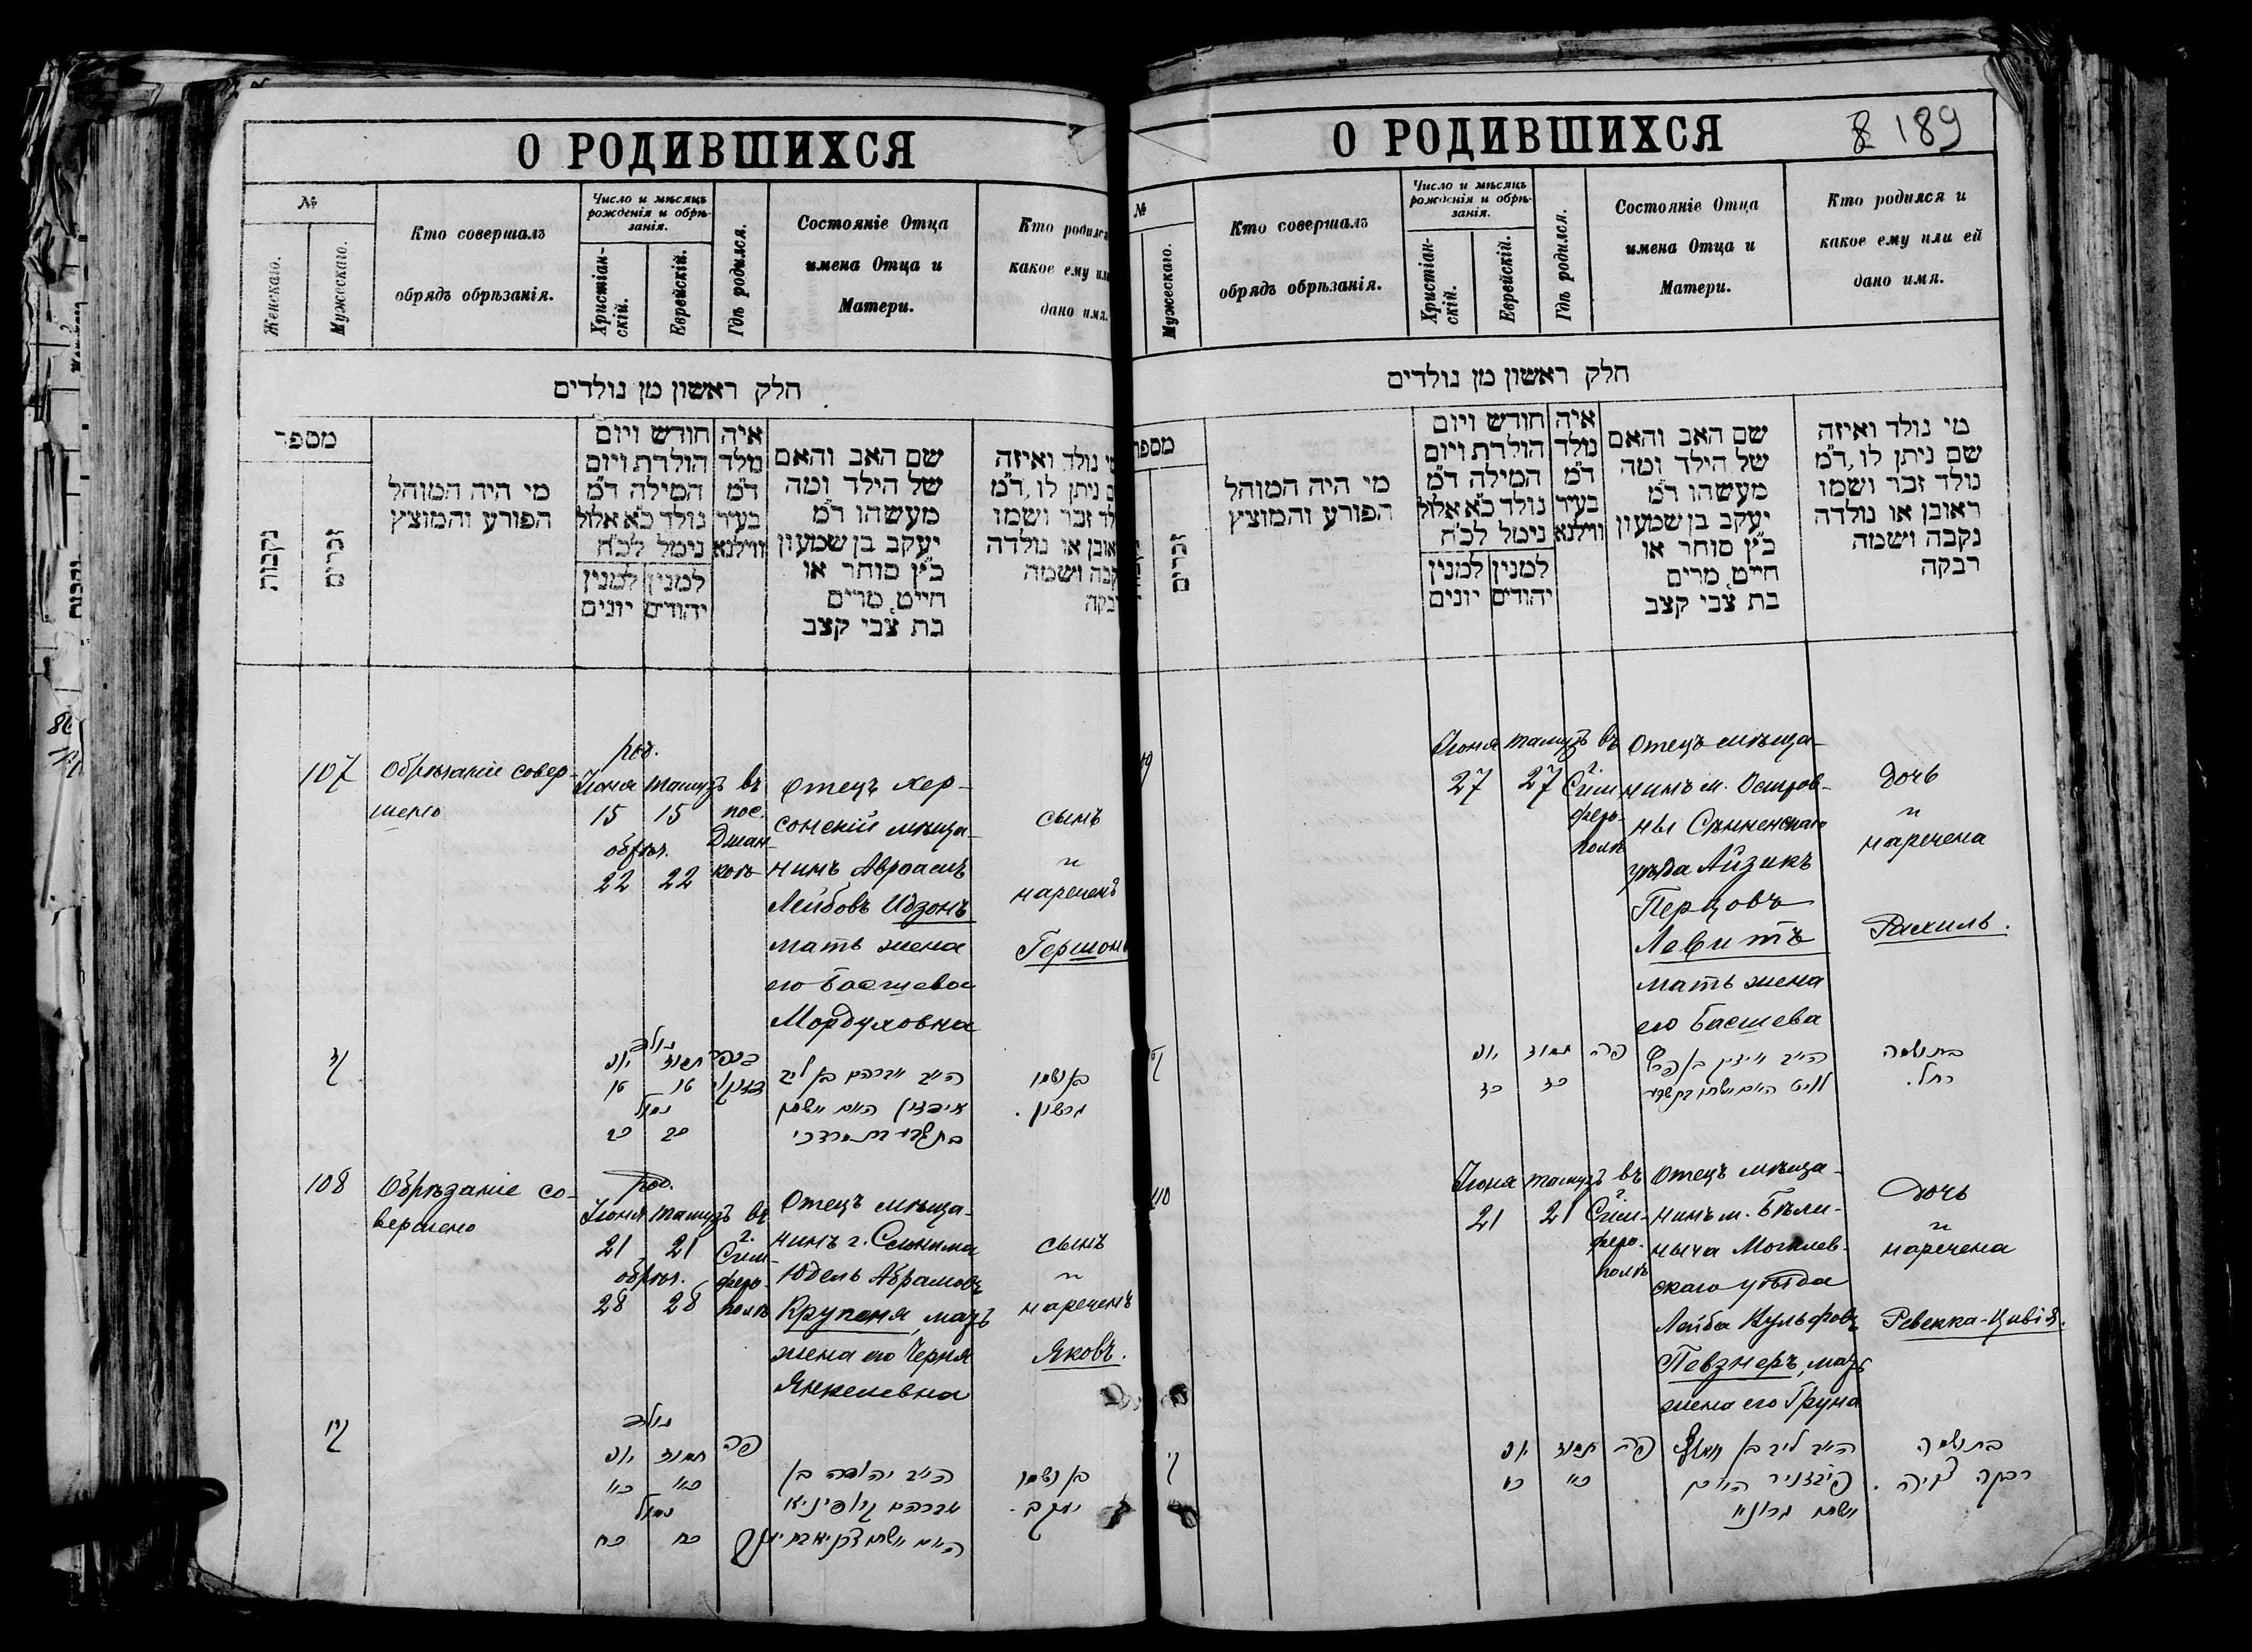 О РОДИВШИХСЯ
№
Женскаго.
Мужескаго.
Кто совершалъ
обрядъ обрѣзанія.
Число и мѣсяцъ
рожденія и обрѣ-
занія.
Христіан-
скій.
Еврейскій.
Гдѣ родился.
Состояніе Отца
имена Отца и
Матери.
Кто родился
какое ему или
дано имя.
חלק ראשון מן נולדים
מספר
נקבות
זכרים
מי היה המוהל
הפורע והמוצץ
חודש ויום
הולדת ויום
המילה ד״מ
נולד כ״א אלול
נימל לכ״ח
למנין
יהודים
למנין
יונים
איה
נולד
ד״מ
בעיר
ווילנא
שם האב והאם
של הילד ומה
מעשהו ד״מ
יעקב בן שמעון
כ״ץ סוחר או
חייט, מרים
בת צבי קצב
נולד ואיזה
ניתן לו, ד״מ
זכר ושמו
או נולדה
ושמה
107
Обрѣзаніе совер-
шено
рож.
Іюня Тамузъ
15 15
обрѣз.
22 22
въ
пос.
Джан-
коѣ
Отецъ хер-
сонскій мѣща-
нинъ Авраамъ
Лейбовъ Идзонъ
мать жена
его Басшева
Мордуховна
сынъ
и
нареченъ
Гершонъ
נולד
יוני תמוז
טו טו
נימול
כב כב
בן ושמו
גרשון.
108
Обрѣзаніе со-
вершено
рож.
Іюня Тамузъ
21 21
обрѣз.
28 28
въ
г.
Сим-
феро-
полѣ
Отецъ мѣща-
нинъ г. Слонима
Юдель Абрамовъ
Крупеня, мать
жена его Черня
Янкелевна
сынъ
и
нареченъ
Яковъ.
נולד
יוני תמוז
כא כא
נימול
כח כח
פה
האב יהודה בן
אברהם
בן ושמו
יעקב.
О РОДИВШИХСЯ
189
№
Мужескаго.
Кто совершалъ
обрядъ обрѣзанія.
Число и мѣсяцъ
рожденія и обрѣ-
занія.
Христіан-
скій.
Еврейскій.
Гдѣ родился.
Состояніе Отца
имена Отца и
Матери.
Кто родился и
какое ему или ей
дано имя.
חלק ראשון מן נולדים
זכרים
מי היה המוהל
הפורע והמוצץ
חודש ויום
הולדת ויום
המילה ד״מ
נולד כ״א אלול
נימל לכ״ח
למנין
יהודים
למנין
יונים
איה
נולד
ד״מ
בעיר
ווילנא
שם האב והאם
של הילד ומה
מעשהו ד״מ
יעקב בן שמעון
כ״ץ סוחר או
חייט, מרים
בת צבי קצב
מי נולד ואיזה
שם ניתן לו, ד״מ
נולד זכר ושמו
ראובן או נולדה
נקבה ושמה
רבקה
Іюня Тамузъ
27 27
въ
г.
Сим
феро-
полѣ
Отецъ мѣща-
нинъ м. Остров-
ны Сѣнненскаго
уѣзда Айзикъ
Перцовъ
Левитъ
мать жена
его Басшева
Дочь
и
наречена
Рахиль.
יוני תמוז פה
כז כז
בת ושמה
רחל.
Іюня Тамузъ
21 21
въ
г.
Сим-
феро-
полѣ
Отецъ мѣща-
нинъ м. Бѣли-
нычи Могилев-
скаго уѣзда
Лейба Вульфовъ
Певзнеръ, мать
жена его Груна
Дочь
и
наречена
Ревекка-Цивія.
יוני תמוז פה
כא כא
האב ליב בן
פיבזניר האם
בת ושמה
רבקה צויה.